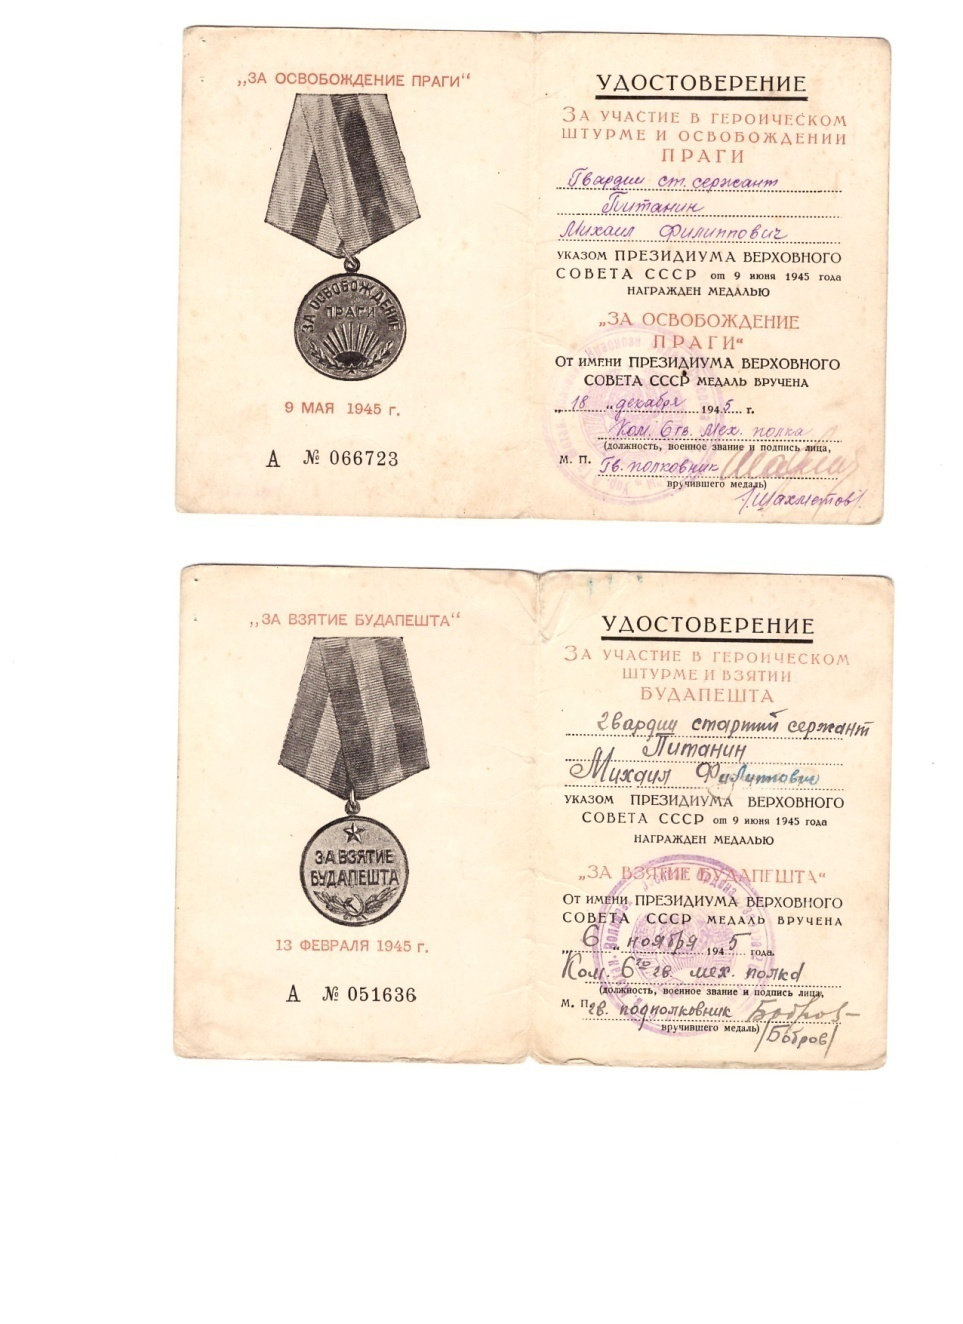 „ЗА ОСВОБОЖДЕНИЕ ПРАГИ“
ЗА ОСВОБОЖДЕНИЕ
ПРАГИ
9 МАЯ 1945 г.
А № 066723
УДОСТОВЕРЕНИЕ
ЗА УЧАСТИЕ В ГЕРОИЧЕСКОМ
ШТУРМЕ И ОСВОБОЖДЕНИИ
ПРАГИ
Гвардии ст. сержант
Питанин
Михаил Филиппович
УКАЗОМ ПРЕЗИДИУМА ВЕРХОВНОГО
СОВЕТА СССР от 9 июня 1945 года
НАГРАЖДЕН МЕДАЛЬЮ
„ЗА ОСВОБОЖДЕНИЕ
ПРАГИ“
От имени ПРЕЗИДИУМА ВЕРХОВНОГО
СОВЕТА СССР МЕДАЛЬ ВРУЧЕНА
„18„ декабря 1945 г.
Ком. 6 гв. мех. полка
(должность, военное звание и подпись лица,
М. П. Гв. полковник
вручившего медаль)
/Шахметов/
„ЗА ВЗЯТИЕ БУДАПЕШТА“
ЗА ВЗЯТИЕ
БУДАПЕШТА
13 ФЕВРАЛЯ 1945 г.
А № 051636
УДОСТОВЕРЕНИЕ
ЗА УЧАСТИЕ В ГЕРОИЧЕСКОМ
ШТУРМЕ И ВЗЯТИИ
БУДАПЕШТА
гвардии старший сержант
Питанин
Михаил Филиппович
УКАЗОМ ПРЕЗИДИУМА ВЕРХОВНОГО
СОВЕТА СССР от 9 июня 1945 года
НАГРАЖДЕН МЕДАЛЬЮ
„ЗА ВЗЯТИЕ БУДАПЕШТА“
От имени ПРЕЗИДИУМА ВЕРХОВНОГО
СОВЕТА СССР МЕДАЛЬ ВРУЧЕНА
„6„ ноября 1945 года.
Ком. 6го гв. мех. полка
(должность, военное звание и подпись лица,
М. П. гв. подполковник Бобров
вручившего медаль) /Бобров/